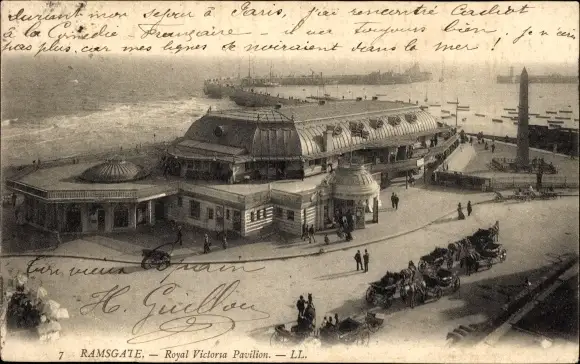 Durant mon séjour à Paris, j'ai rencontré Cachot
à la Comédie Française _ il va toujours bien, je n'en
pas plus, car mes lignes se noiraient dans la mer !
Ton vieux copain
H. Guillou
7 RAMSGATE. — Royal Victoria Pavilion. — LL.